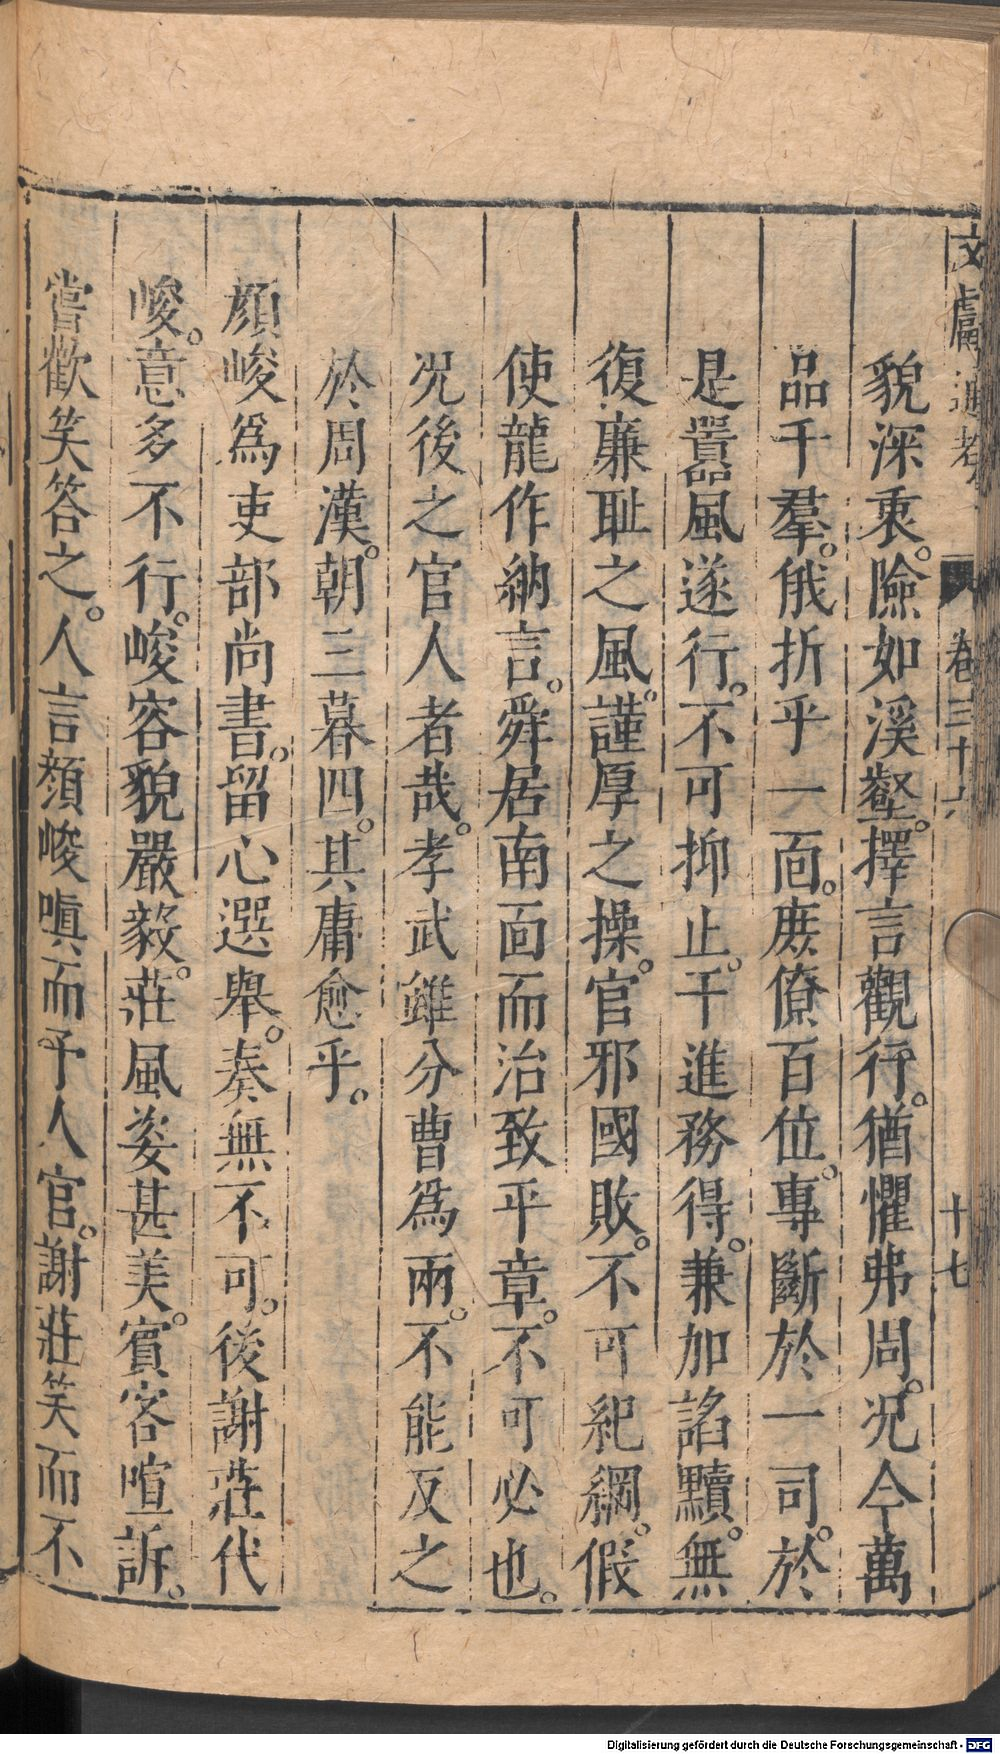 文獻通考 卷三十六 十七
貌深衷。險如溪壑。擇言觀行。猶懼弗周。况今萬
品千羣。俄折乎一面。庶僚百位。專斷於一司。於
是囂風遂行。不可抑止。干進務得。兼加諂黷。無
復廉耻之風。謹厚之操。官邪國敗。不可紀綱。假
使龍作納言。舜居南面而治致平章。不可必也。
况後之官人者哉。孝武雖分曹爲兩。不能反之
於周漢。朝三暮四。其庸愈乎。
顔峻爲吏部尚書。留心選舉。奏無不可。後謝莊代
峻。意多不行。峻容貌嚴毅。莊風姿甚美。賓客喧訴。
嘗歡笑答之。人言顏峻嗔而予人官。謝莊笑而不
Digitalisierung gefördert durch die Deutsche Forschungsgemeinschaft - DFG